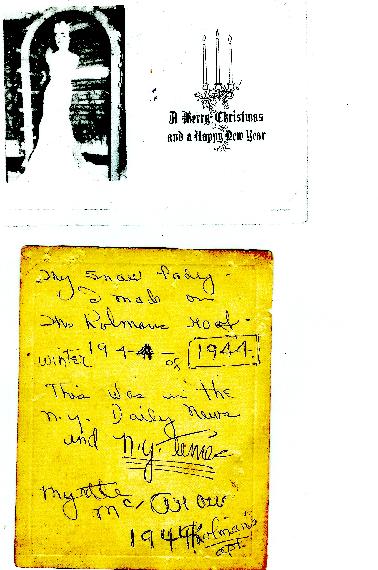 A Merry Christmas
and a Happy New Year
My Snow Lady -
I made on
The Holmans Roof -
winter 1944 - of 1944
This was in the
N.Y. Daily News
and N.Y. Times
Myrtle
Mc
1944 Holman's
apt.